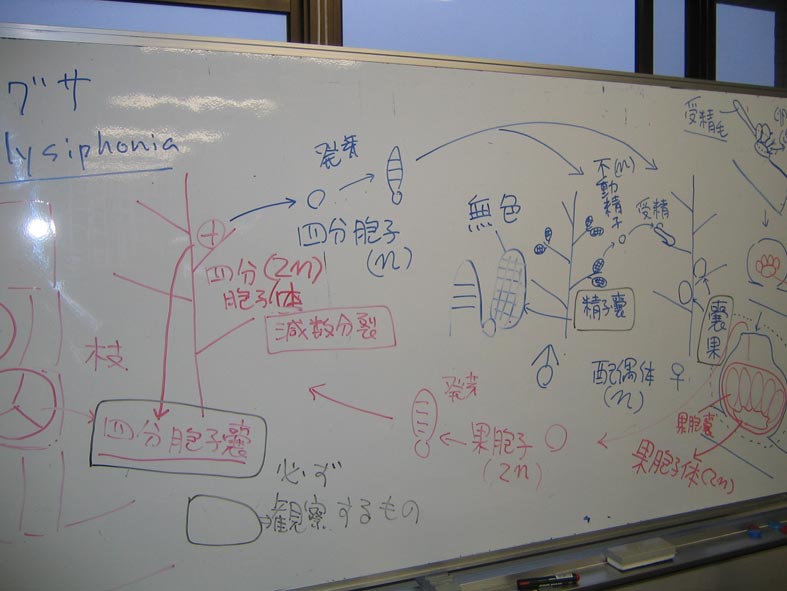 グサ
lysiphonia
発芽
四分胞子
(n)
四分(2n)
胞子体
減数分裂
枝
四分胞子嚢
必ず
観察するもの
無色
不(n)
動精子
受精
精子嚢
配偶体 ♀
(n)
♂
受精毛
嚢果
発芽
果胞子
(2n)
果胞嚢
果胞子体(2n)